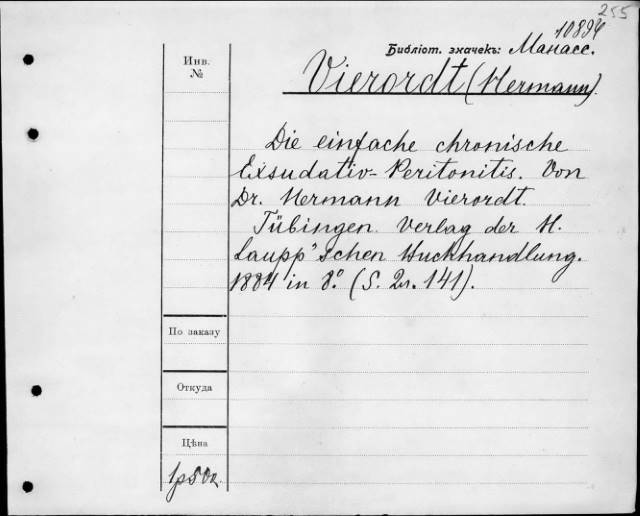 255
10894
Библіот. значекъ: Манасс.
Инв.
№
Vierordt (Hermann).
Die einfache chronische
Exsudativ-Peritonitis. Von
Dr. Hermann Vierordt.
Tübingen. Verlag der H.
Laupp'schen Buchhandlung.
1884 in 8.° (S. 2н. 141).
По заказу
Откуда
Цѣна